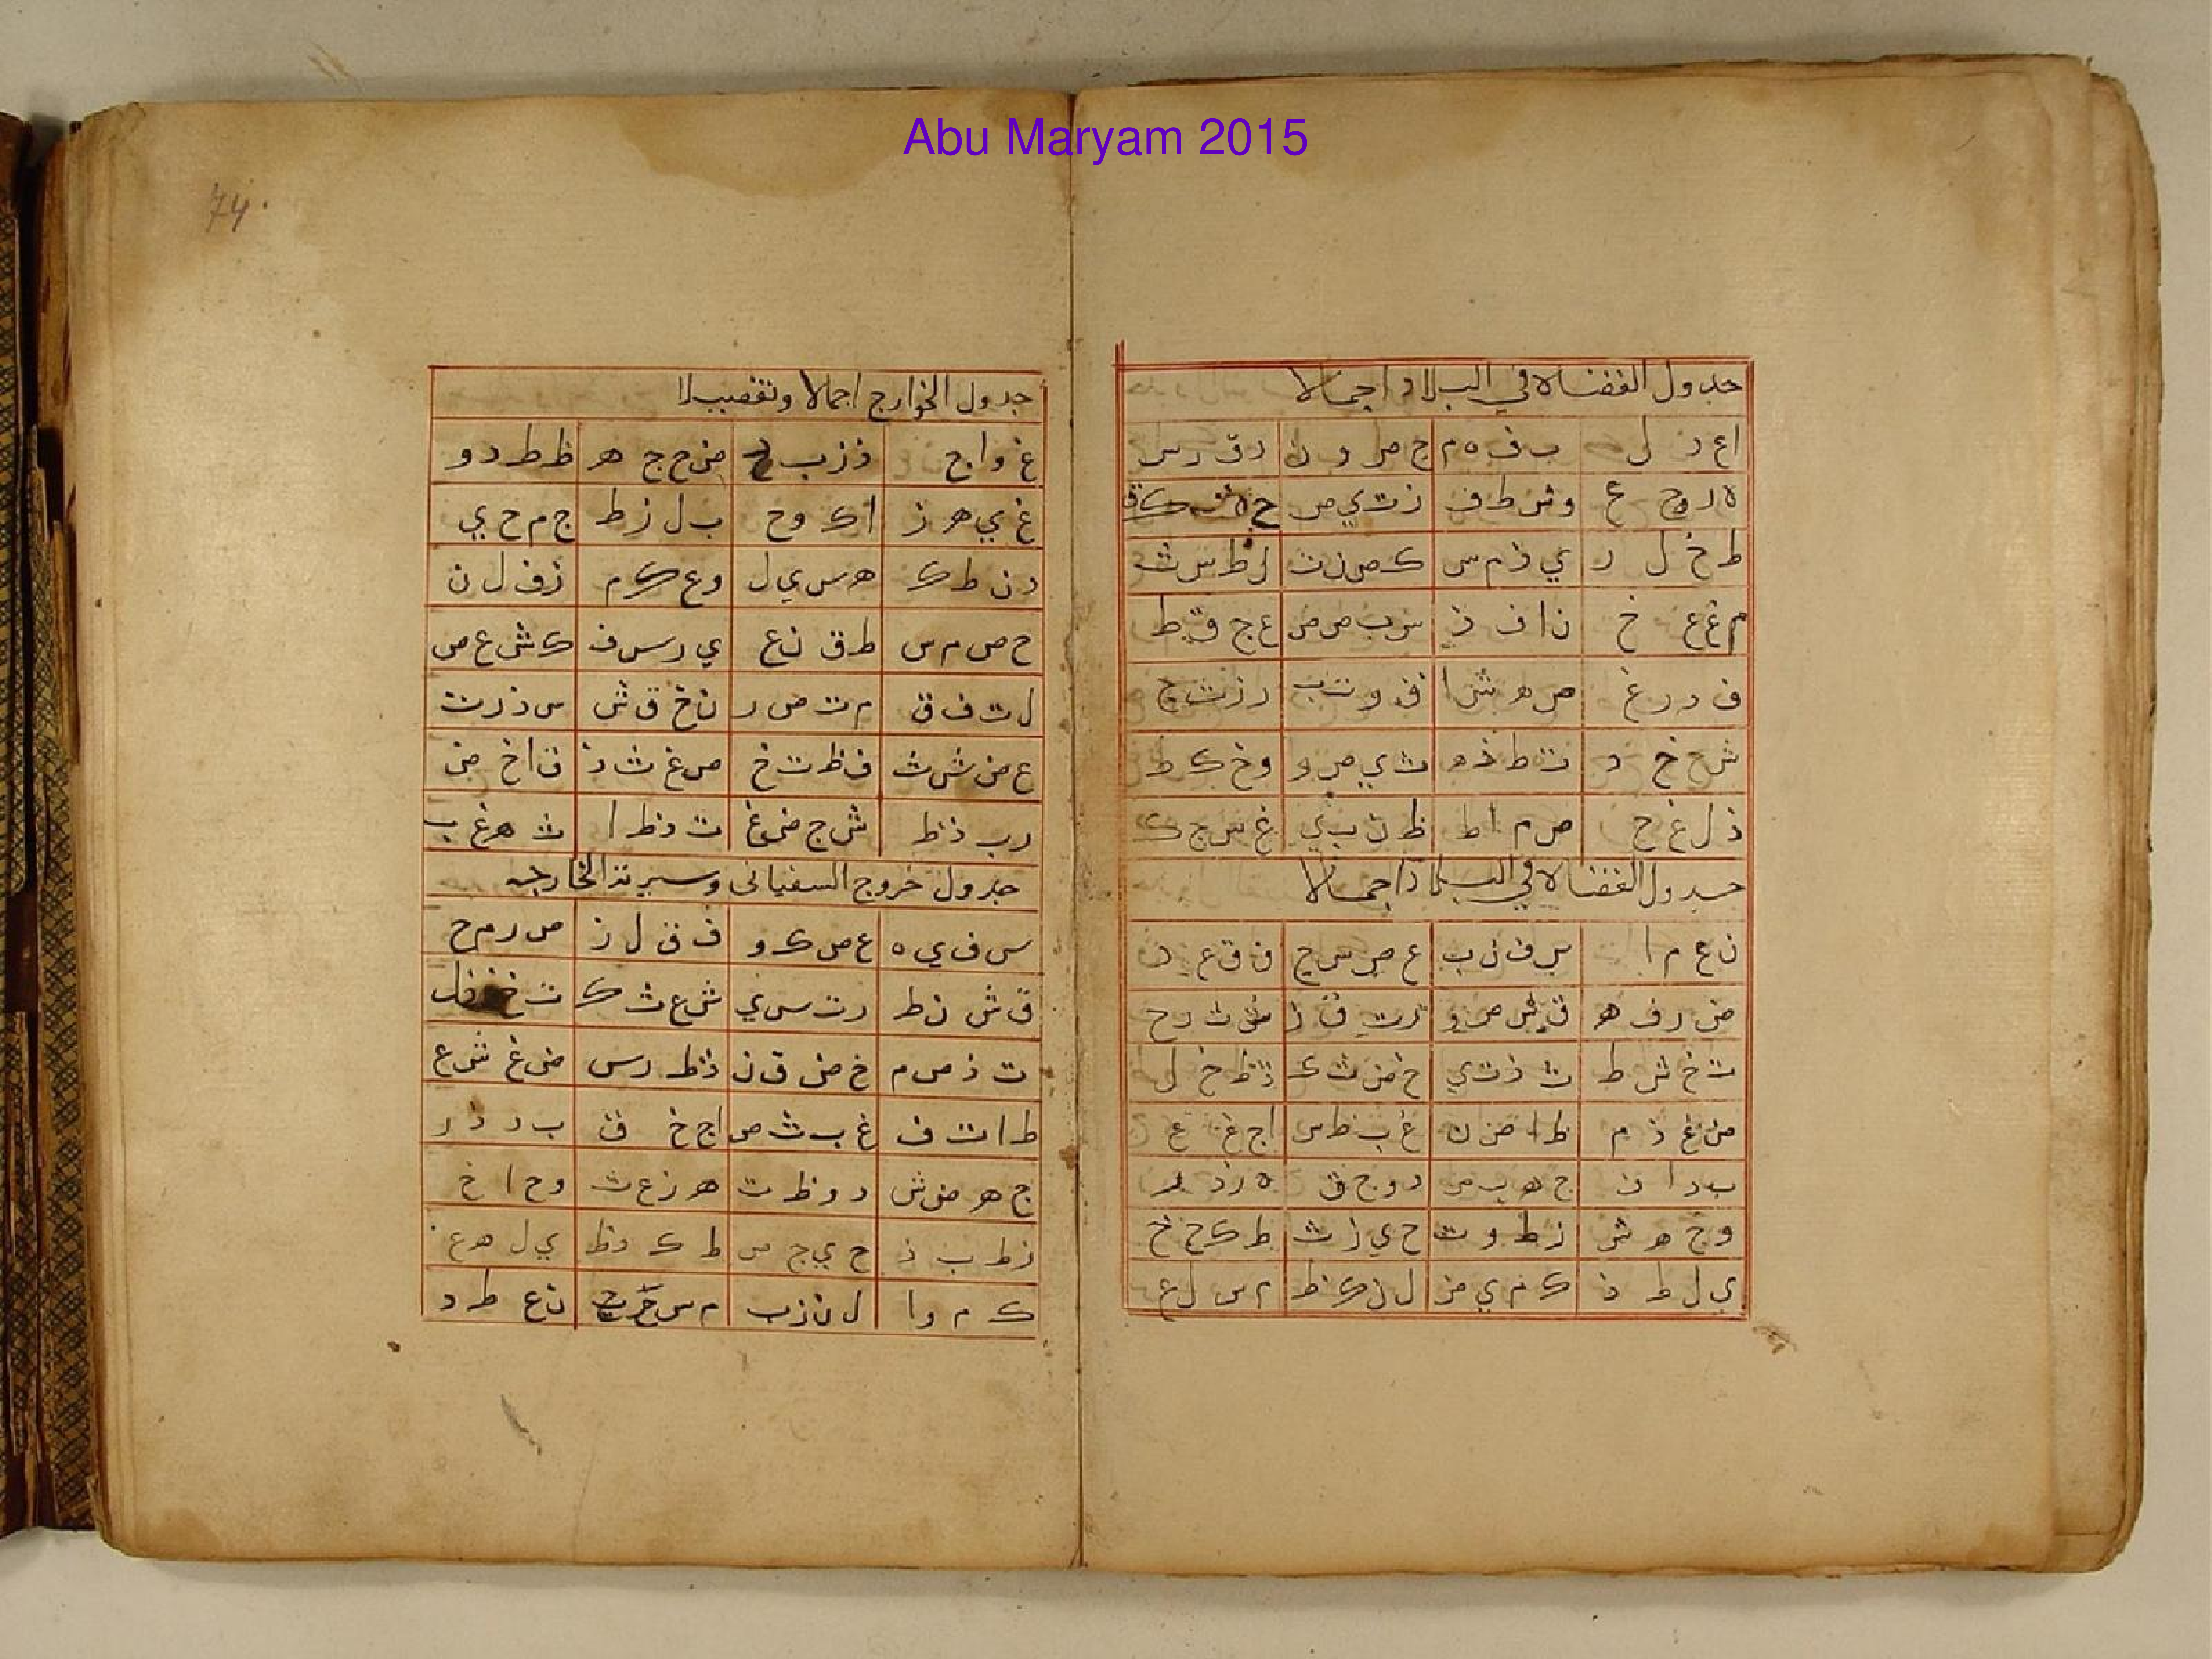 Abu Maryam 2015
جدول القضاة في البلاد اجمالا
ا ع د ل ب ف ه م ج ص و ن د ق ر س
ه ر و ح ع و ش ط ف ز ت ي ص ك ق
ط خ ل ر ي ذ م س ك ض ن ت ل ظ س ث
م غ ع خ ن ا ف ذ س ب ص ض ع ج ق ظ
ف د ر غ ص ه ش ا ق و ت ب ر ز ث ج
ش ح خ د ت ط ذ ه ث ي ض و و خ ك ظ
ذ ل غ ح ض م ا ط ظ ن ب ي غ س ج ك
جدول القضاة في البلاد اجمالا
ن ع م ا س ف ن ب ع ص س ج ف ق ع د
ض ر ف ه ق ش ص و ر ت ق ز ش ث ر ح
ت خ ش ط ث ذ ت ي خ ض ث ك ذ ظ خ ل
ض غ ذ م ظ ا ض ن غ ب ظ س ا ج غ ع
ب د ا ف ج ه ب ص د و ج ق ه ز د ر
و ح ه ش ز ط و ت ح ي ز ث ط ك ح خ
ي ل ط ذ ك م ي ض ل ن ك ظ م س ل غ
74
جدول الخوارج اجمالا وتفصيلا
غ و ا ج ذ ز ب د ض ح ج ه ظ ط د و
غ ي ه ز ا ك و ح ب ل ز ط ج م ح ي
د ن ط ك ه س ي ل و ع ك م ز ف ل ن
ح ص م س ط ق ن ع ي ر س ف ك ش ع ص
ل ت ف ق م ث ص ر ن خ ق ش س ذ ر ت
ع ض ش ث ف ظ ت خ ص غ ث ذ ق ا خ ض
ر ب ذ ظ ش ج ض غ ت د ظ ا ث ه غ ب
جدول خروج السفيانى وسيرته الخارجه
س ف ي ه ع ص ك و ف ق ل ز ص ر م ح
ق ش ن ط ر ت س ي ش ع ث ك ت خ ف ل
ث ذ ص م خ ض ق ن ذ ظ ر س ض غ ش ع
ظ ا ت ف غ ب ث ص ا ج خ ق ب د ذ ر
ج ه ض ش د و ظ ت ه ز غ ث و ح ا خ
ز ط ب ذ ح ي ج ض ط ك د ظ ي ل ه غ
ك م و ا ل ن ز ب م س ح ج ن ع ط د